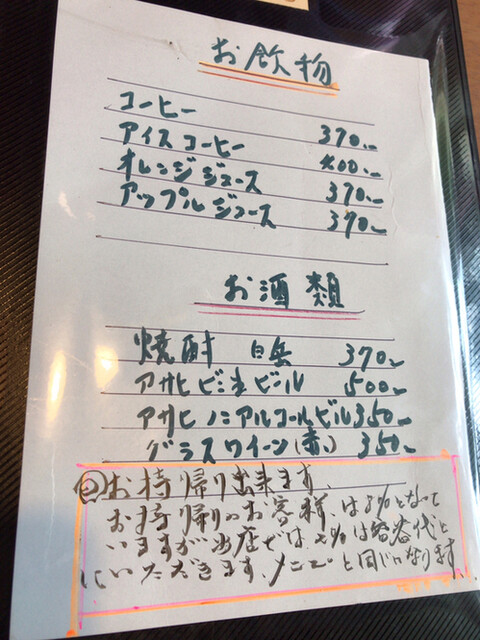 お飲物
コーヒー 370.-
アイスコーヒー 400.-
オレンジジュース 370.-
アップルジュース 370.-
お酒類
焼酎 白岳 370-
アサヒビン生ビール 500-
アサヒノンアルコールビル350-
グラスワイーン(赤) 350-
お持帰り出来ます、
お持帰りのお客様、は8%となって
いますが当店では、2%は容器代と
にいただきます、メニューと同じになります